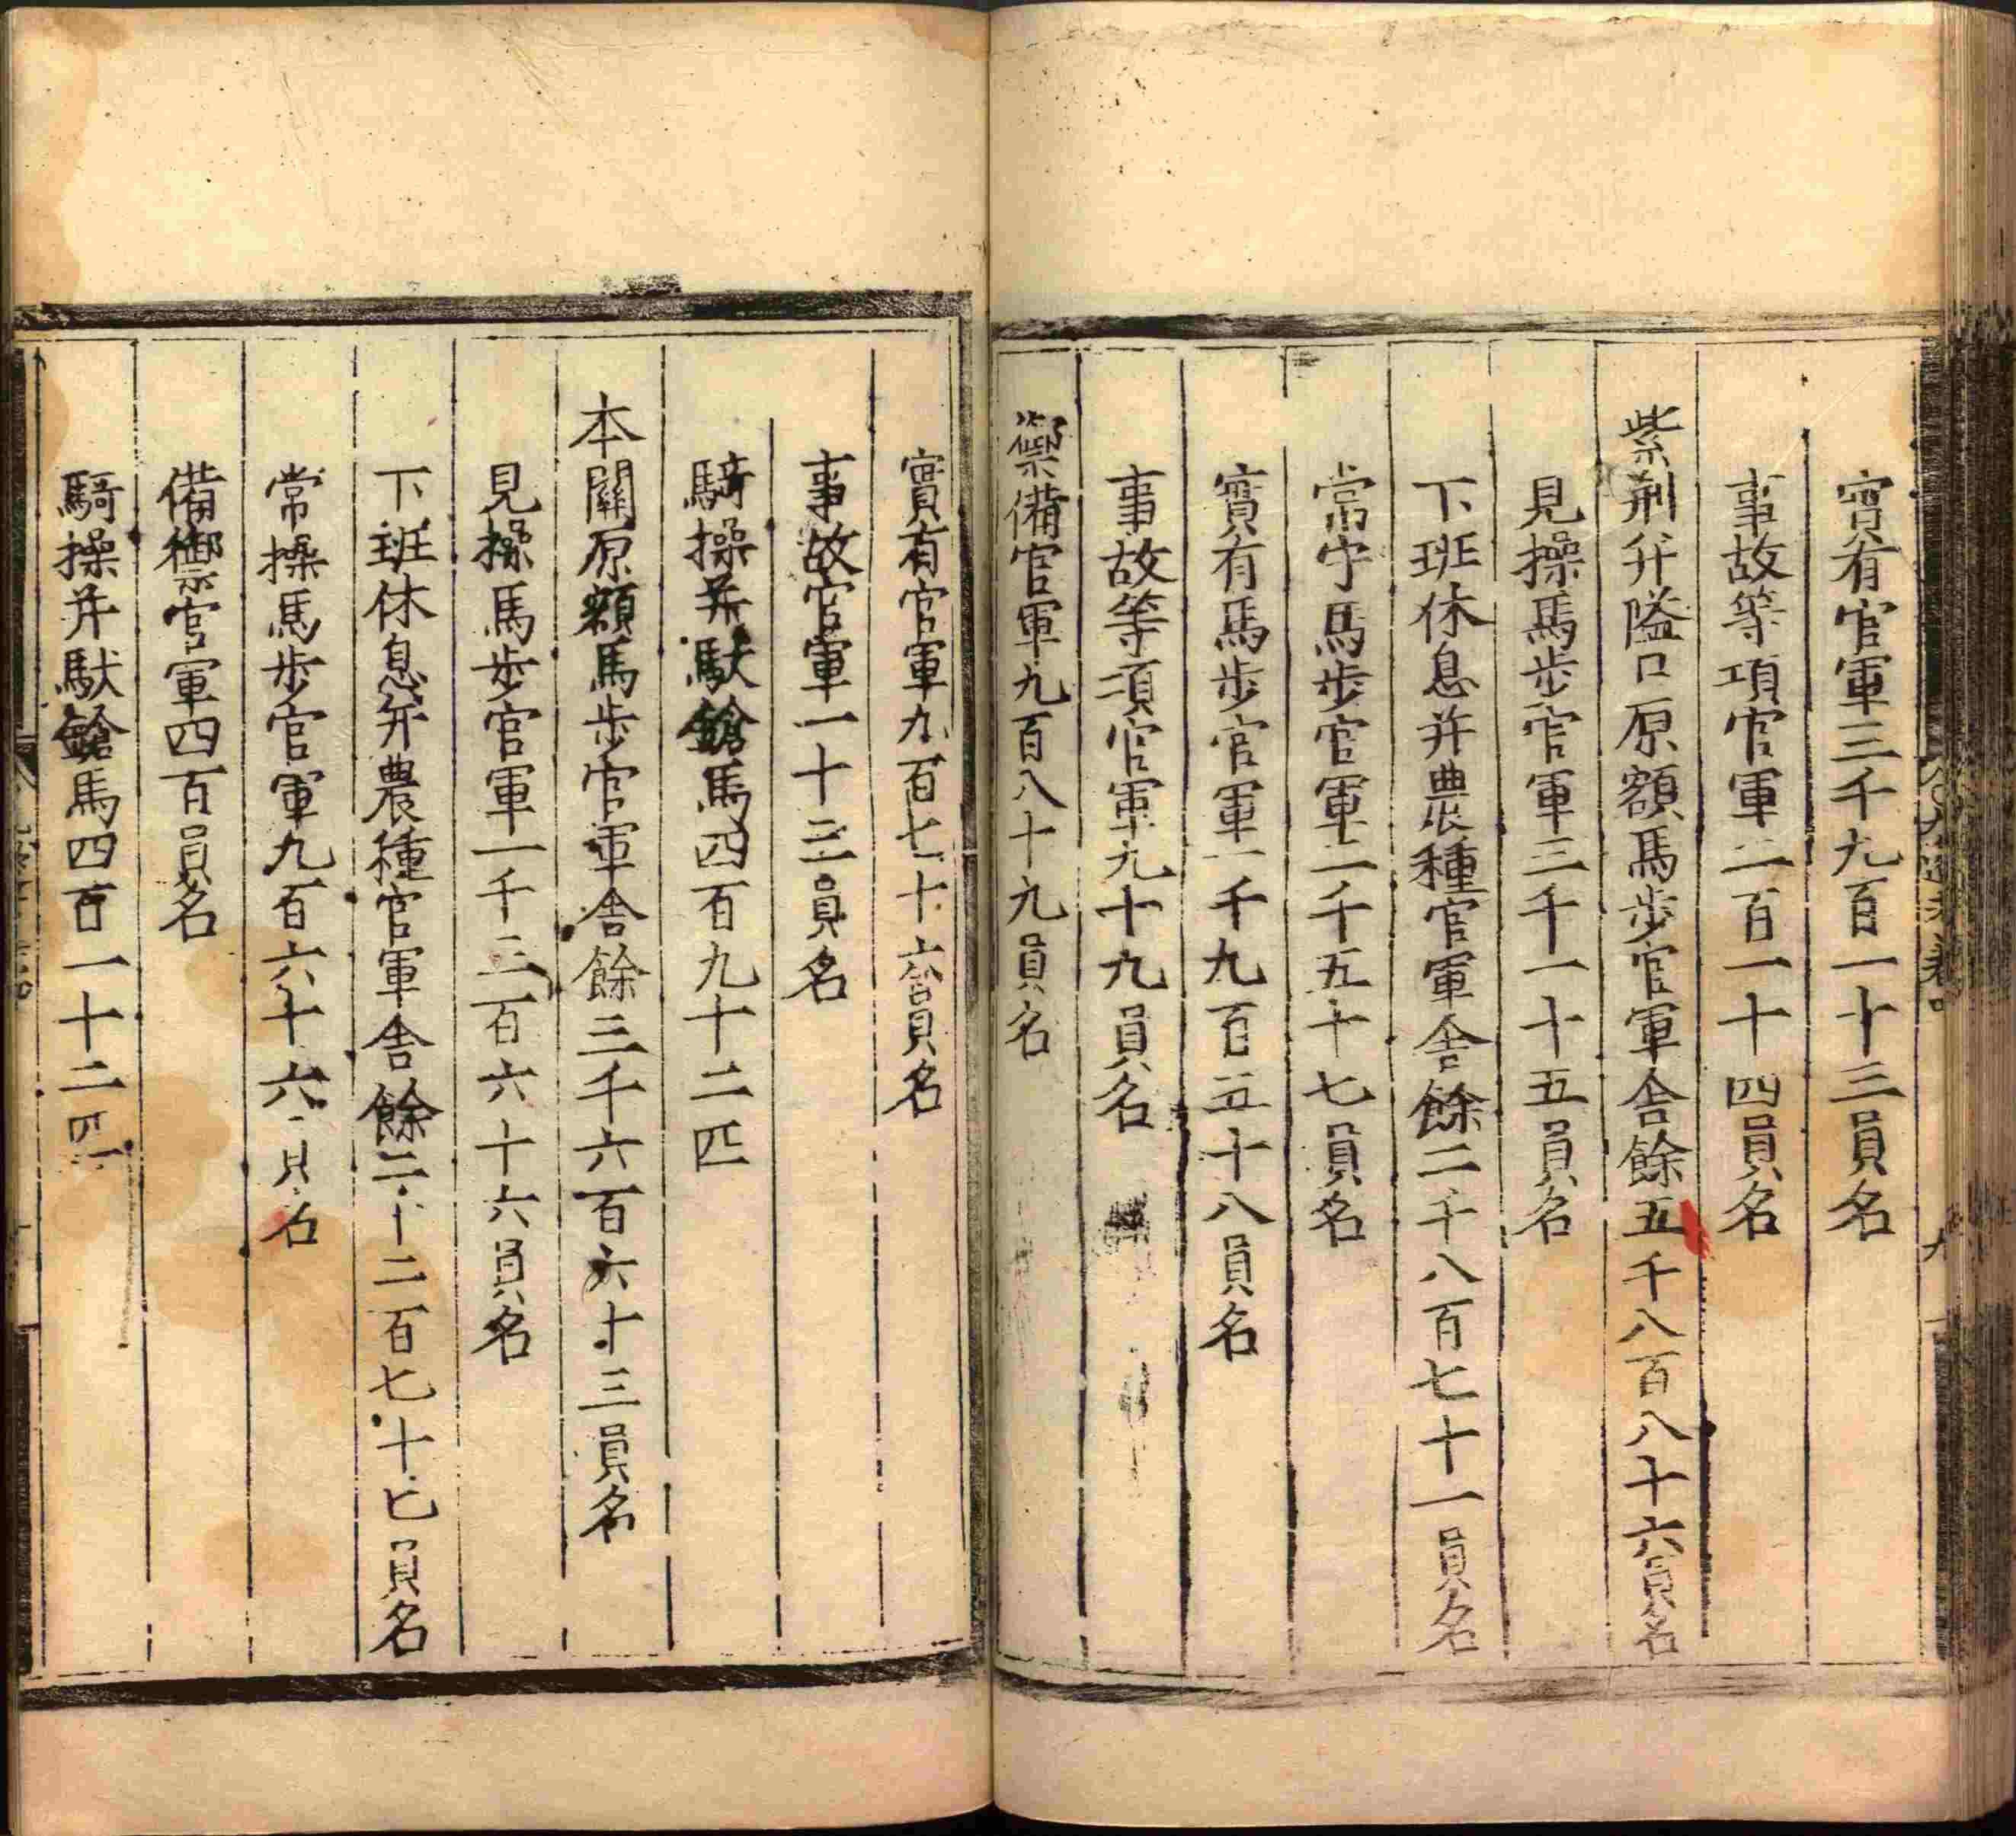 實有官軍三千九百一十三員名
事故等項官軍二百一十四員名
紫荆并隘口原額馬步官軍舍餘五千八百八十六員名
見操馬步官軍三千一十五員名
下班休息并農種官軍舍餘二千八百七十一員名
常守馬步官軍二千五十七員名
實有馬步官軍一千九百五十八員名
事故等項官軍九十九員名
禦備官軍九百八十九員名
實有官軍九百七十六員名
事故官軍一十三員名
騎操并馱鎗馬四百九十二匹
本關原額馬步官軍舍餘三千六百六十三員名
見操馬步官軍一千三百六十六員名
下班休息并農種官軍舍餘二千二百七十七員名
常操馬步官軍九百六十六員名
備禦官軍四百員名
騎操并馱鎗馬四百一十二匹